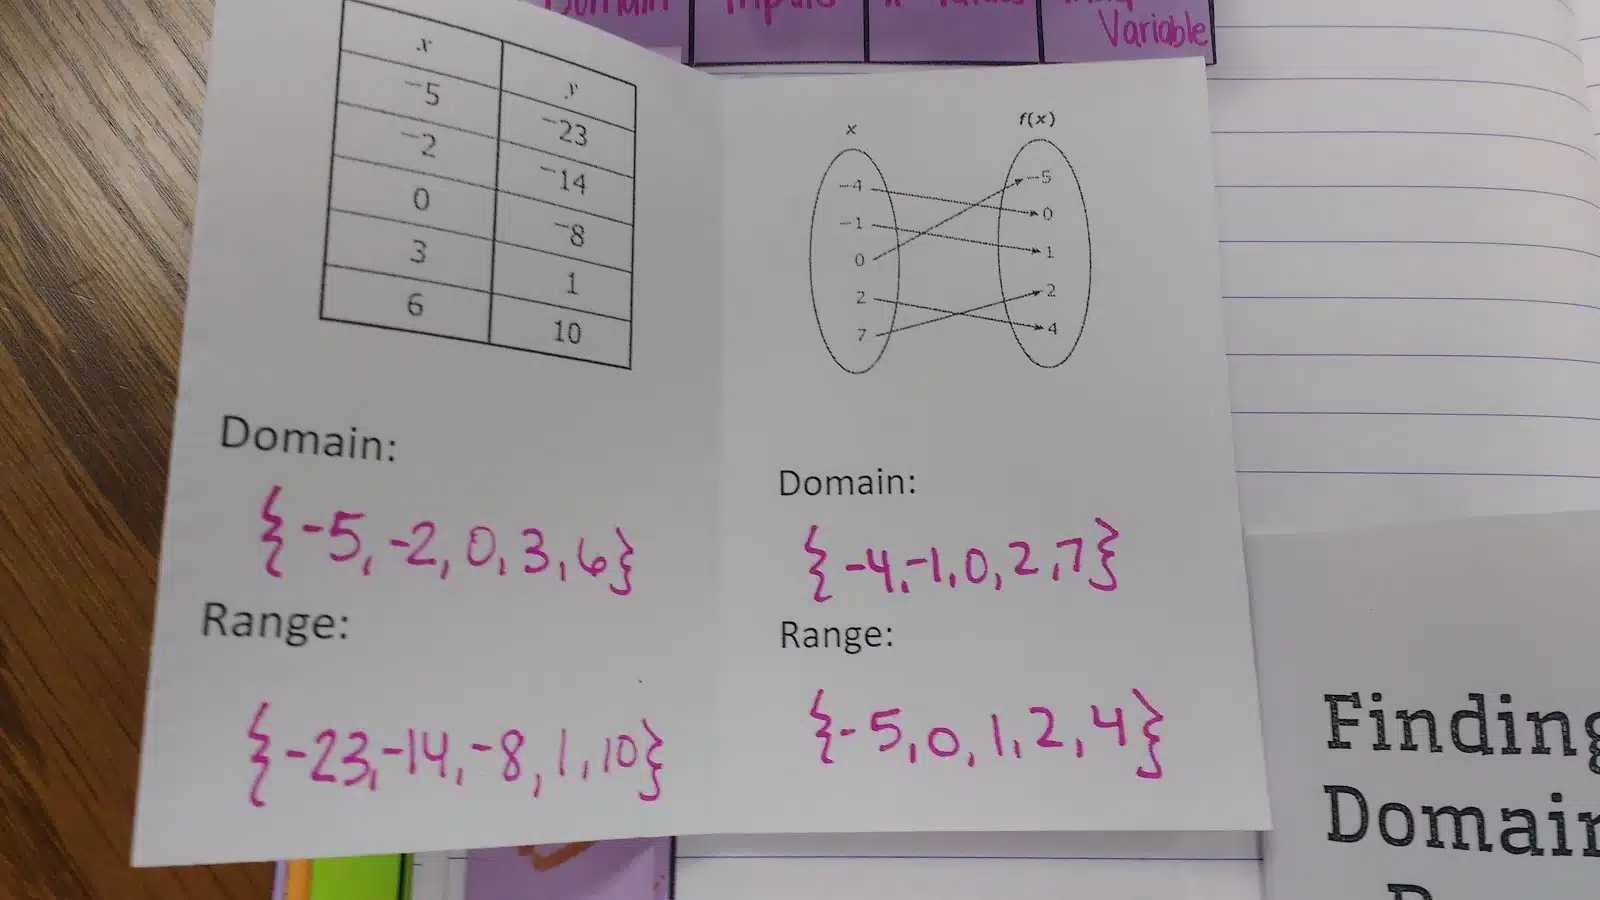 Domain Inputs
Variable
x y
-5 -23
-2 -14
0 -8
3 1
6 10
Domain:
{-5, -2, 0, 3, 6}
Range:
{-23, -14, -8, 1, 10}
x f(x)
-4 -5
-1 0
0 1
2 2
7 4
Domain:
{-4, -1, 0, 2, 7}
Range:
{-5, 0, 1, 2, 4}
Finding
Domain